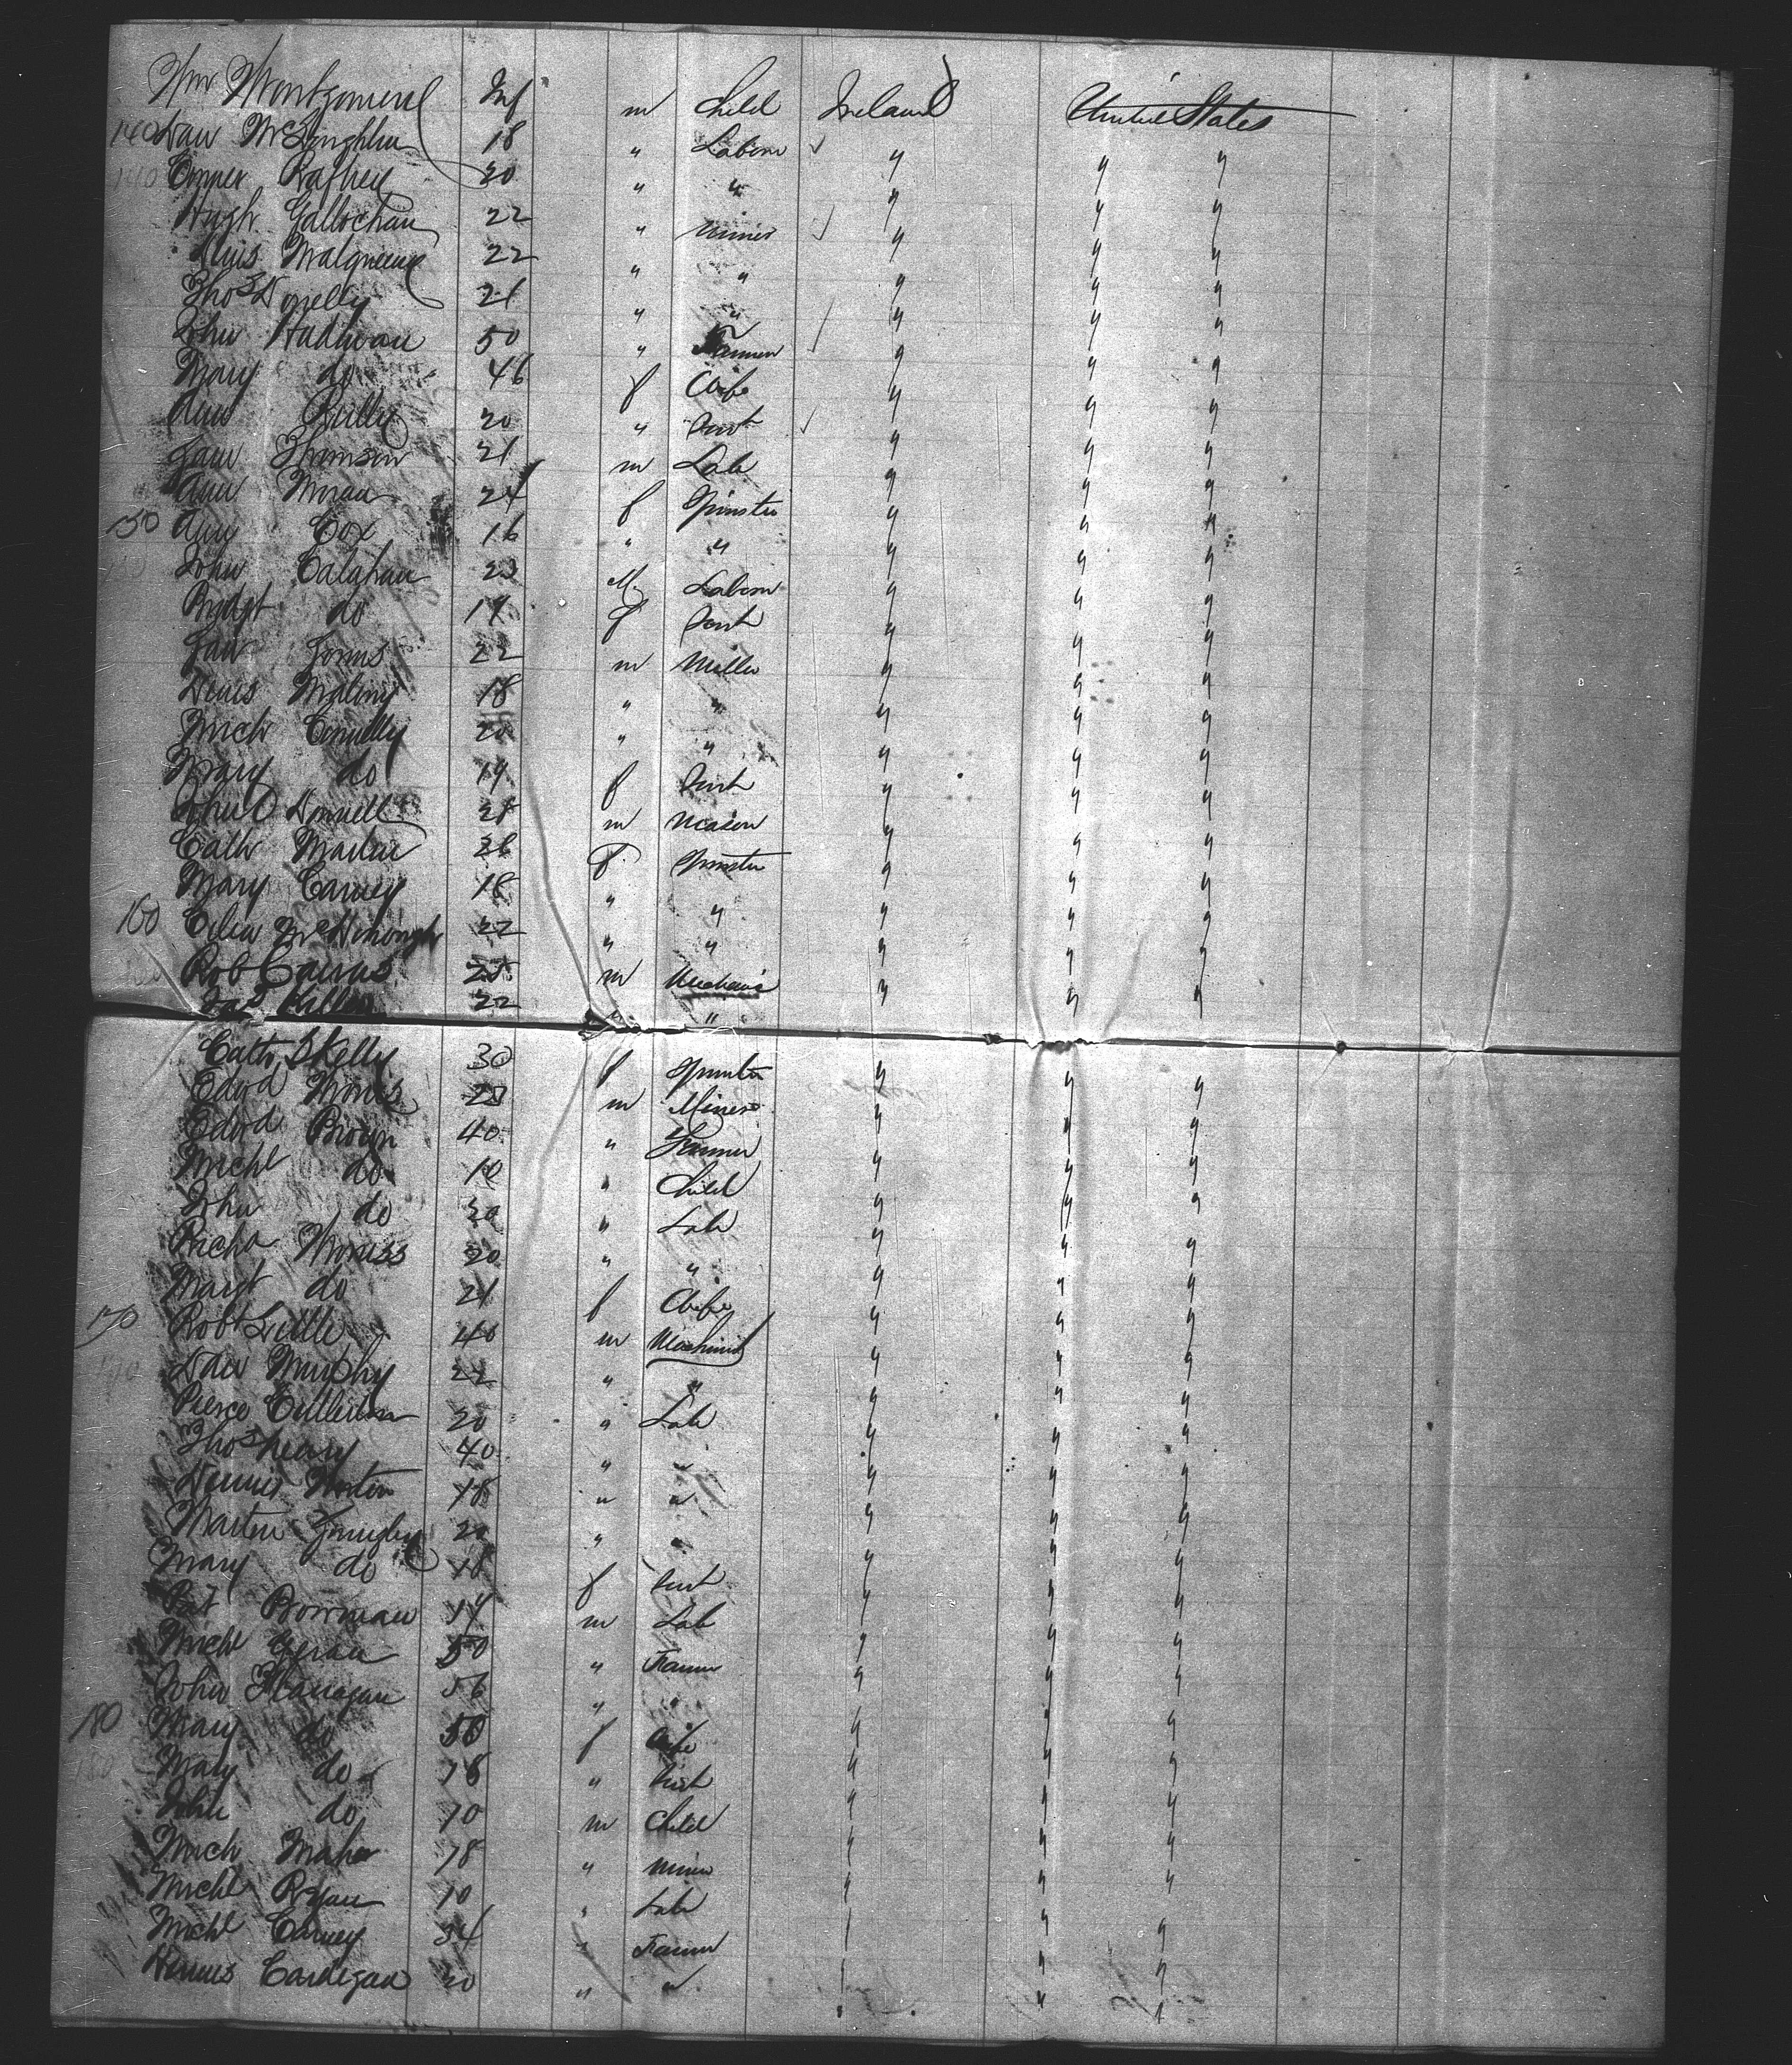 Wm Montgomery Inf m Child Ireland United States
140 Dan McLoughlin 18 " Labour " " "
140 Rafhey 20 " " " " "
Hugh Gallochan 22 " Miner " " "
22 " " " " "
Thos Donelly 21 " " " " "
John 50 " Farmer " " "
Mary do 46 f Wife " " "
Ann Reilly 20 " Servt " " "
Jam Thomson 21 m Lab " " "
Ann Moran 24 f Spinster " " "
150 Amy Cox 16 " " " " "
John Calahan 23 M Labour " " "
Bridgt do f Servt " " "
Jam 22 m Miller " " "
Denis Malony 18 " " " " "
Mich Connelly 20 " " " " "
Mary do 19 f Servt " " "
John O Donnell 28 m Mason " " "
Cath Martin 26 F Spinster " " "
Mary Carney 18 " " " " "
160 McDonough 22 " " " " "
Rob Cairns 25 m Mechanic " " "
Jas 22 " "
Cath Skelly 30 f Spinster " " "
Edwd m Miner " " "
Edwd Brown 40 " Farmer " " "
Michl do 10 " Child " " "
John do 20 " Lab " " "
Richd 20 " " " " "
Margt do 21 f Wife " " "
170 Robt Little 40 m Machinist " " "
170 Dan Murphy 22 " " " " "
Pierce Culleton 20 " Lab " " "
Thos Neary 40 " " " " "
Dennis 18 " " " " "
Martin 20 " " " " "
Mary do 18 f Servt " " "
Pat Bowman 19 m Lab " " "
Michl Geran 50 " Farmer " " "
John Flanagan 56 " " " " "
180 Mary do 50 f Wife " " "
180 Mary do 18 " Servt " " "
John do 10 m Child " " "
Mich Maher 18 " Miner " " "
Michl Ryan " Lab " " "
Michl Carney 34 " Farmer " " "
Dennis Cardigan 20 " " " " "